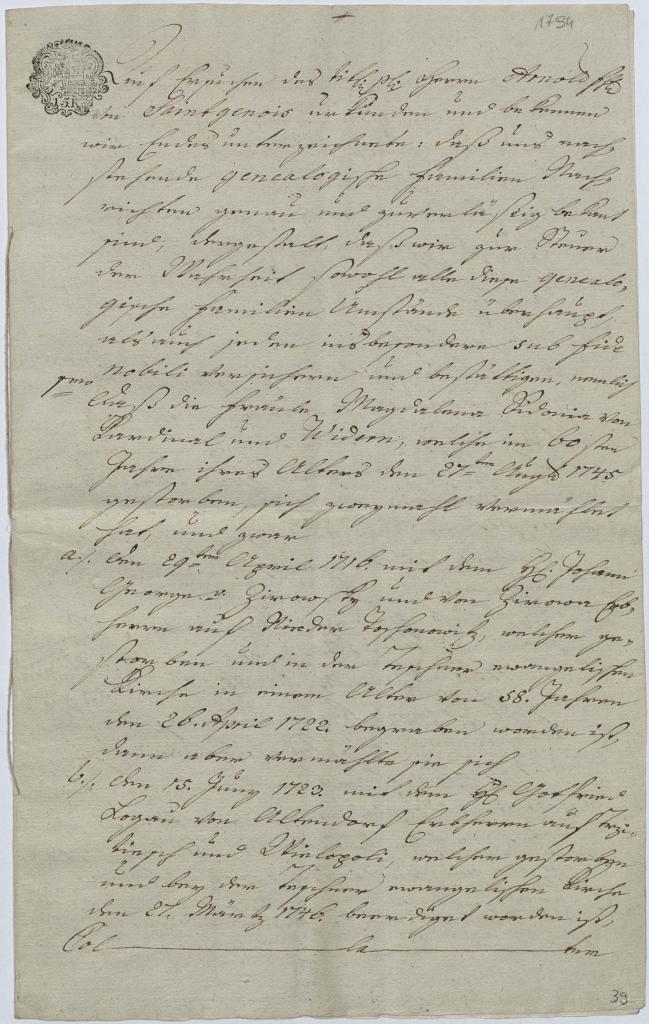 1794
15 K
Auf Ersuchen des titl: pl: Herrn Arnold
Saintgenois urkunden und bekennen
wir Endesunterzeichnete: daß uns nach-
stehende genealogische Familien Nach-
richten genau und zuverläßig bekant
sind, dergestalt, daß wir zur Steuer
der Wahrheit sowohl alle diese genealo-
gische Familien Umstände überhaupt,
als auch jeden insbesondere sub fide
nobili versichern und bestättigen, nemlich
1mo daß die Fräule Magdalena Sidonia von
Kardinal und Widern, welche im 60sten
Jahre ihres Alters den 27ten Aug 1745
gestorben, sich zweymahl vermählet
hat, und zwar
a./. den 29ten April 1716. mit dem H: Johann
George v. Zirowsky und von Zirowa Erb-
herrn auf Nieder Toschonowitz, welcher ge-
storben und in der Teschner evangelischen
Kirche in einem Alter von 58. Jahren
den 26. April 1722. begraben worden ist,
dann aber vermählte sie sich
b./. den 15. Juny 1723. mit dem H: Gottfried
Logau von Altendorf Erbherrn auf Trzi-
tiesch und Wielopoli, welcher gestorben
und bey der Teschner evangelischen Kirche
den 27. Märtz 1746. beerdiget worden ist,
Col la tum
39